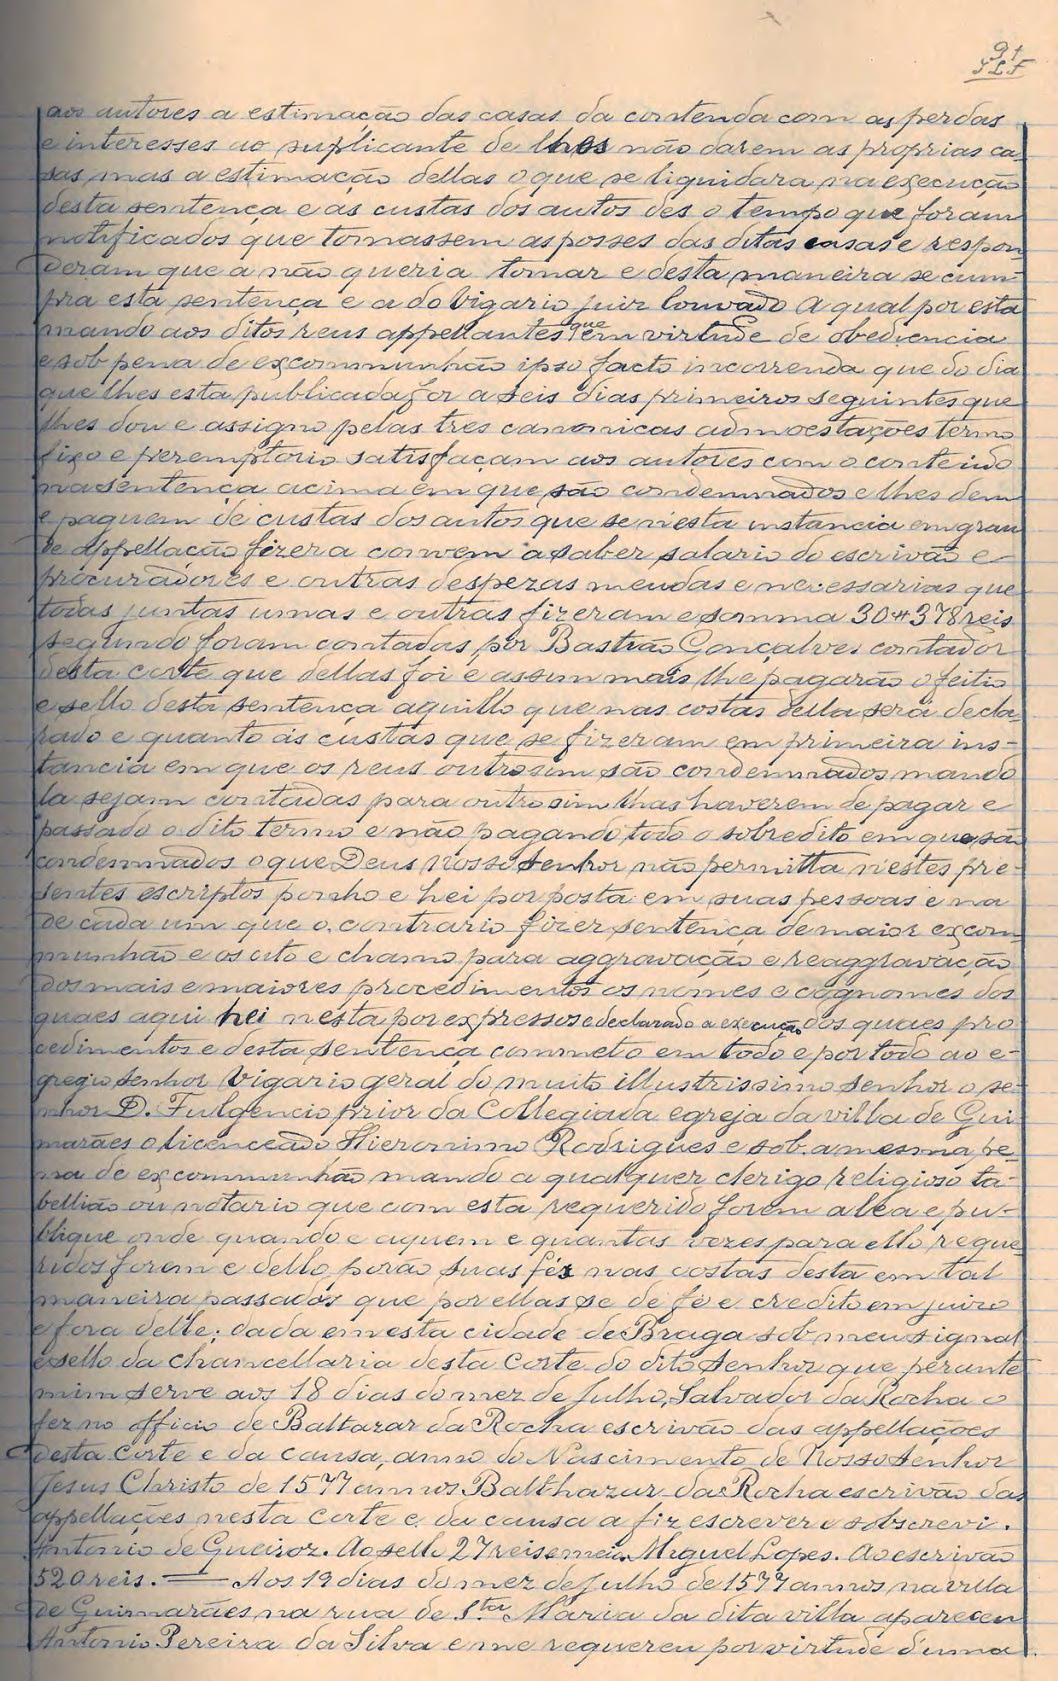 91
SLF
aos autores a estimação das casas da contenda com as perdas
e interesses ao suplicante de lhos não darem as proprias ca
sas mas a estimação dellas o que se liquidara na execução
desta sentença e as custas dos autos des o tempo que foram
notificados que tomassem as posses das ditas casas e respon
deram que a não queria tomar e desta maneira se cum-
pra esta sentença e a do vigario juiz louvado a qual por esta
mando aos ditos reus appellantes que em virtude de obediencia
e sob pena de excommunhão ipso facto incorrenda que do dia
que lhes esta publicada for a seis dias primeiros seguintes que
lhes dou e assigno pelas tres canonicas admoestações termo
fixo e peremptorio satisfaçam aos autores com o conteudo
na sentença acima em que são condemnados e lhes dem
e paguem de custas dos autos que se n'esta instancia em grau
de appellação fizera convem a saber salario do escrivão e
procuradores e outras despezas meudas e necessarias que
todas juntas umas e outras fizeram e somma 30#378 reis
segundo foram contadas por Bastião Gonçalves contador
desta corte que dellas foi e assim mais lhe pagarão o feitio
e sello desta sentença aquillo que nas costas della será decla
rado e quanto ás custas que se fizeram em primeira ins-
tancia em que os reus outrosim são condemnados mando
la sejam contadas para outrosim lhas haverem de pagar e
passado o dito termo e não pagando todo o sobredito em que são
condemnados o que Deus Nosso Senhor não permitta n'estes pre-
sentes escriptos ponho e hei por posta em suas pessoas e na
de cada um que o contrario fizer sentença de maior excom
munhão e os cito e chamo para aggravação e reaggravação
dos mais e maiores procedimentos os nomes e cognomes dos
quaes aqui hei nesta por expressos e declarado a execução dos quaes pro
cedimentos e desta sentença commeto em todo e por todo ao e-
gregio senhor Vigario geral do muito illustrissimo senhor o se-
nhor D. Fulgencio prior da Collegiada egreja da villa de Gui
marães o licenceado Hieronimo Rodrigues e sob a mesma pe-
na de excommunhão mando a qualquer clerigo religioso ta-
bellião ou notario que com esta requerido forem a lea e pu-
blique onde quando e aquem e quantas vezes para ello reque
ridos forem e dello porão suas fés nas costas desta em tal
maneira passados que por ellas se de fé e credito em juizo
e fora delle; dada em esta cidade de Braga sob meu signal
e sello da chancellaria desta Corte do dito Senhor que perante
mim serve aos 18 dias do mez de Julho, Salvador da Rocha o
fez no officio de Baltazar da Rocha escrivão das appellações
desta Corte e da causa, anno do Nascimento de Nosso Senhor
Jesus Christo de 1577 annos Balthazar da Rocha escrivão das
appellações nesta Corte e da causa a fiz escrever e sobscrevi.
Antonio de Gueiroz. Ao sello 27 reis e meio Miguel Lopes. Ao escrivão
520 reis. — Aos 19 dias do mez de Julho de 1577 annos na villa
de Guimarães na rua de S.ta Maria da dita villa apareceu
Antonio Pereira da Silva e me requereu por virtude d'uma